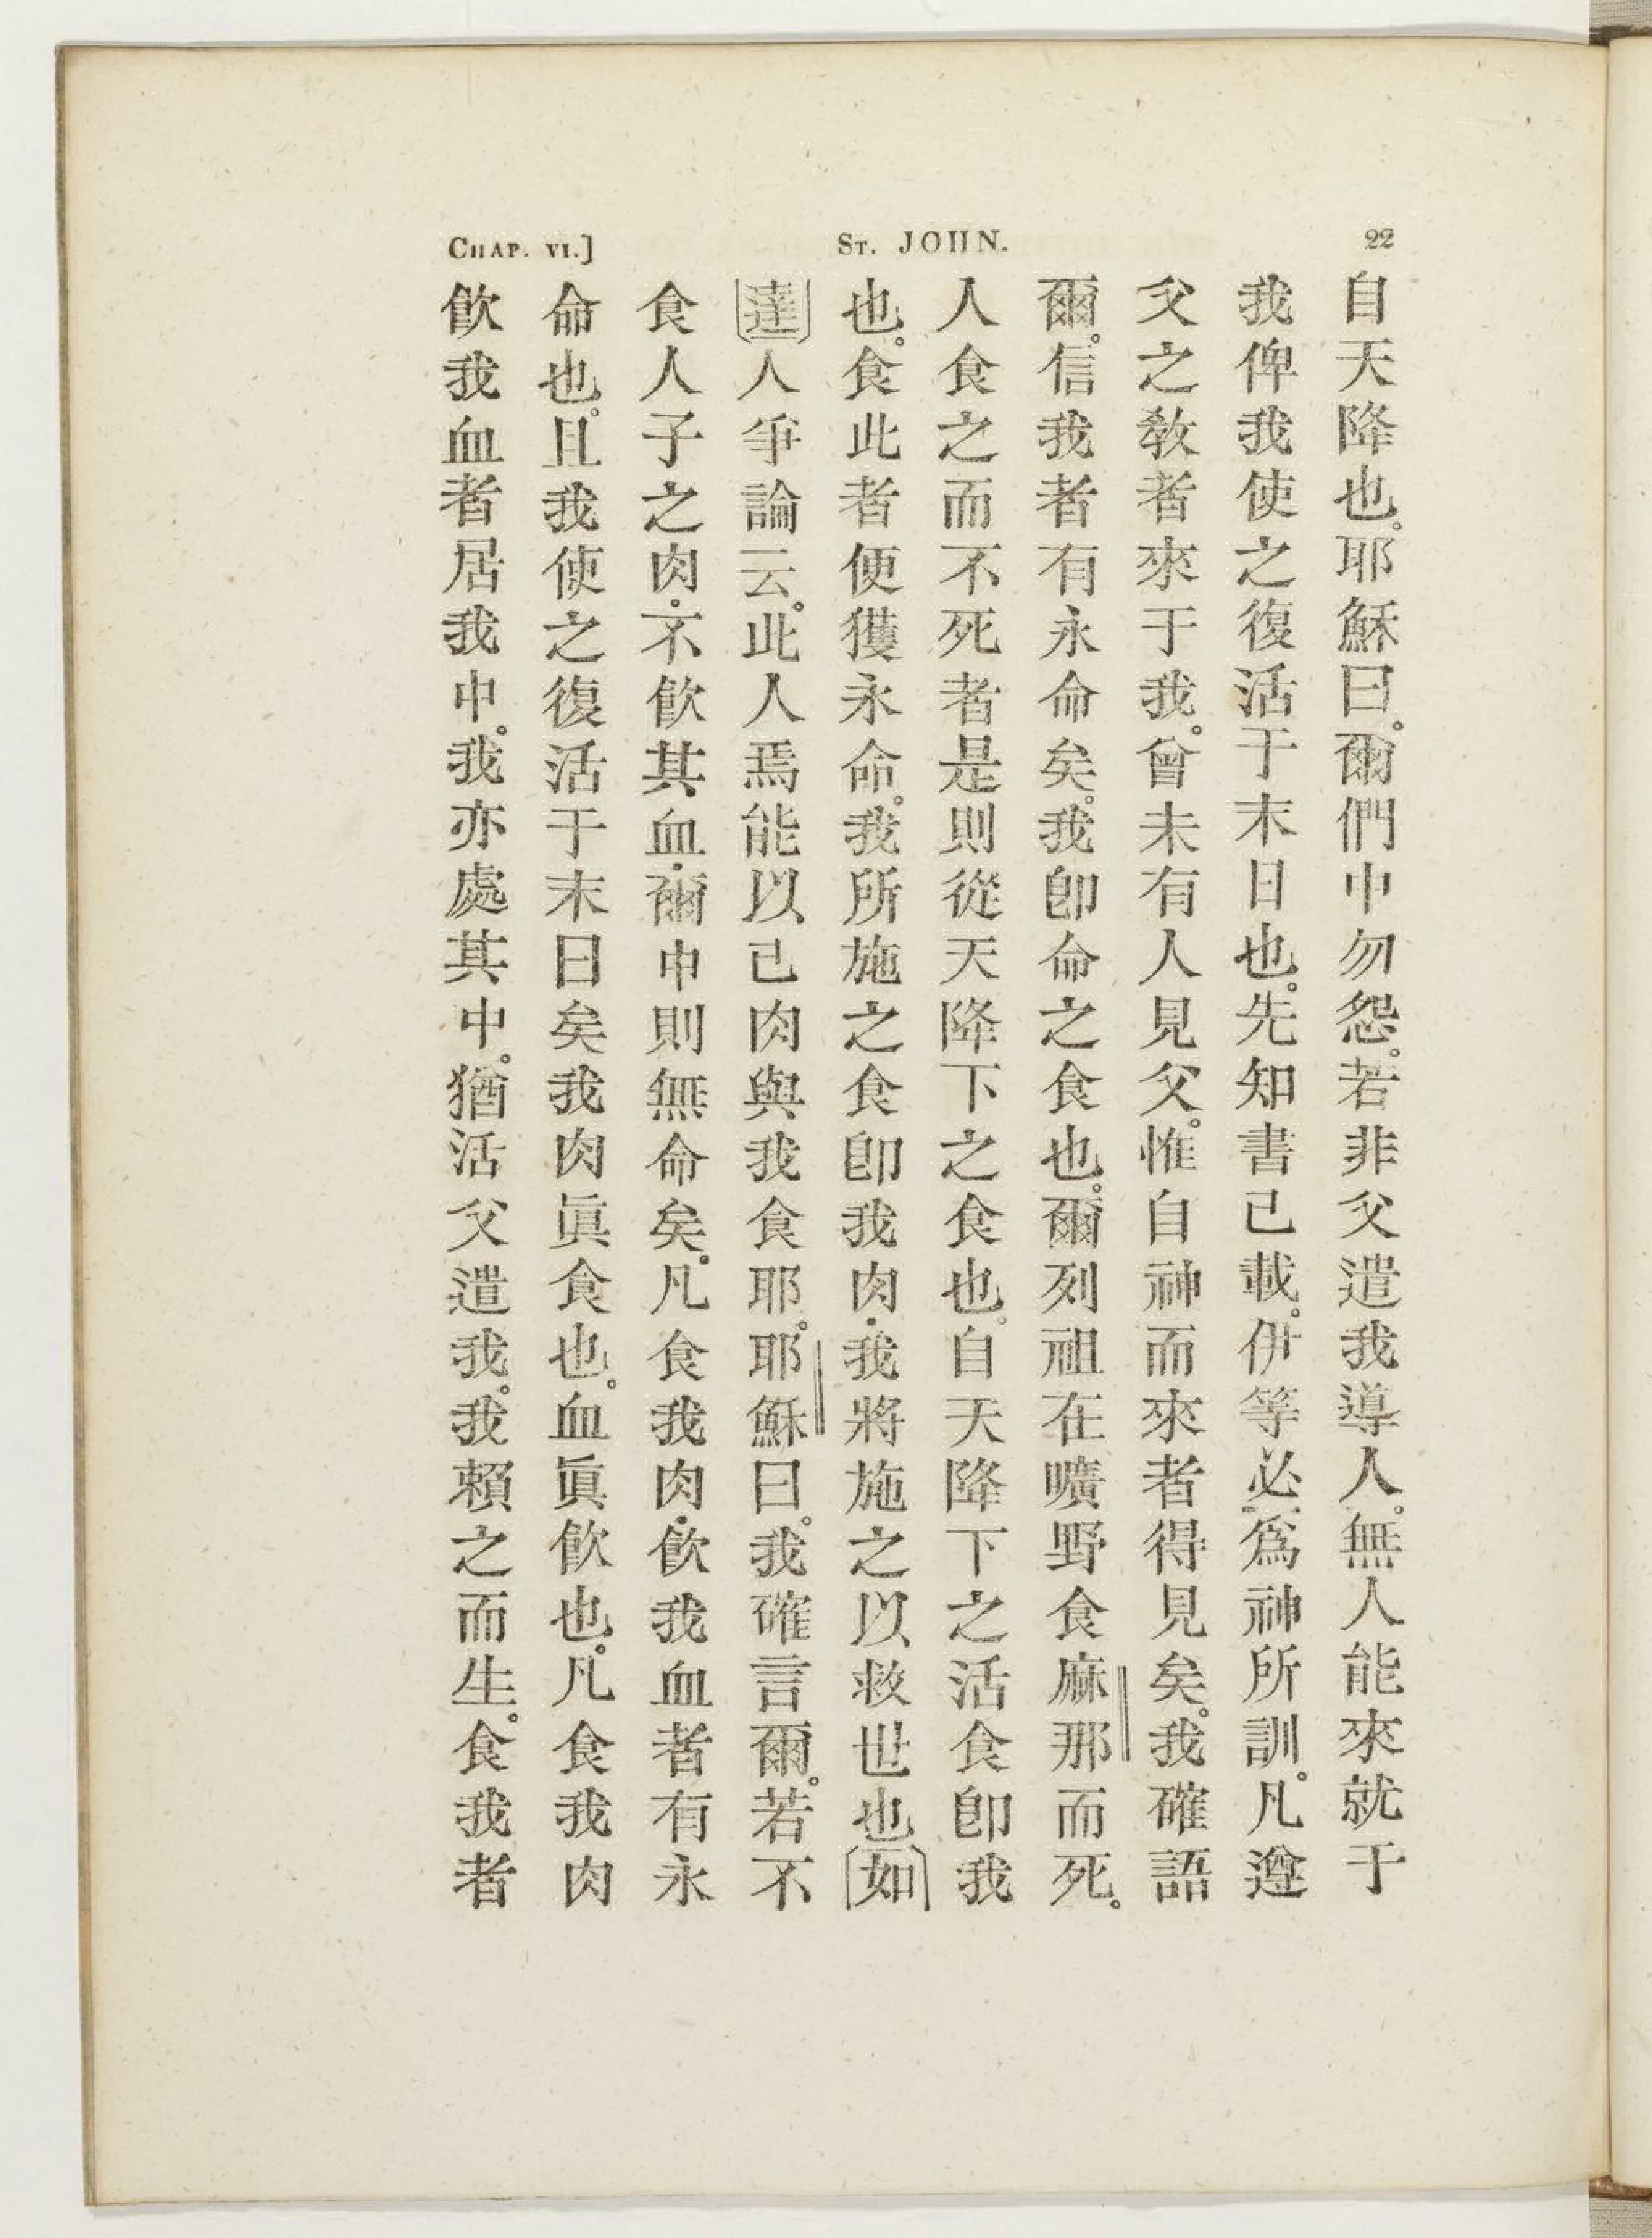 CHAP. VI.] ST. JOHN. 22
自天降也。耶穌曰。爾們中勿怨。若非父遣我導人。無人能來就于
我俾我使之復活于末日也。先知書己載。伊等必爲神所訓。凡遵
父之敎者來于我。曾未有人見父。惟自神而來者得見矣。我確語
爾。信我者有永命矣。我卽命之食也。爾列祖在曠野食麻那而死。
人食之而不死者是則從天降下之食也。自天降下之活食卽我
也。食此者便獲永命。我所施之食卽我肉.我將施之以救世也〔如
達〕人爭論云。此人焉能以己肉與我食耶。耶穌曰。我確言爾。若不
食人子之肉.不飮其血.爾中則無命矣。凡食我肉.飮我血者有永
命也。且我使之復活于末日矣我肉眞食也。血眞飮也。凡食我肉
飮我血者居我中。我亦處其中。猶活父遣我。我賴之而生。食我者